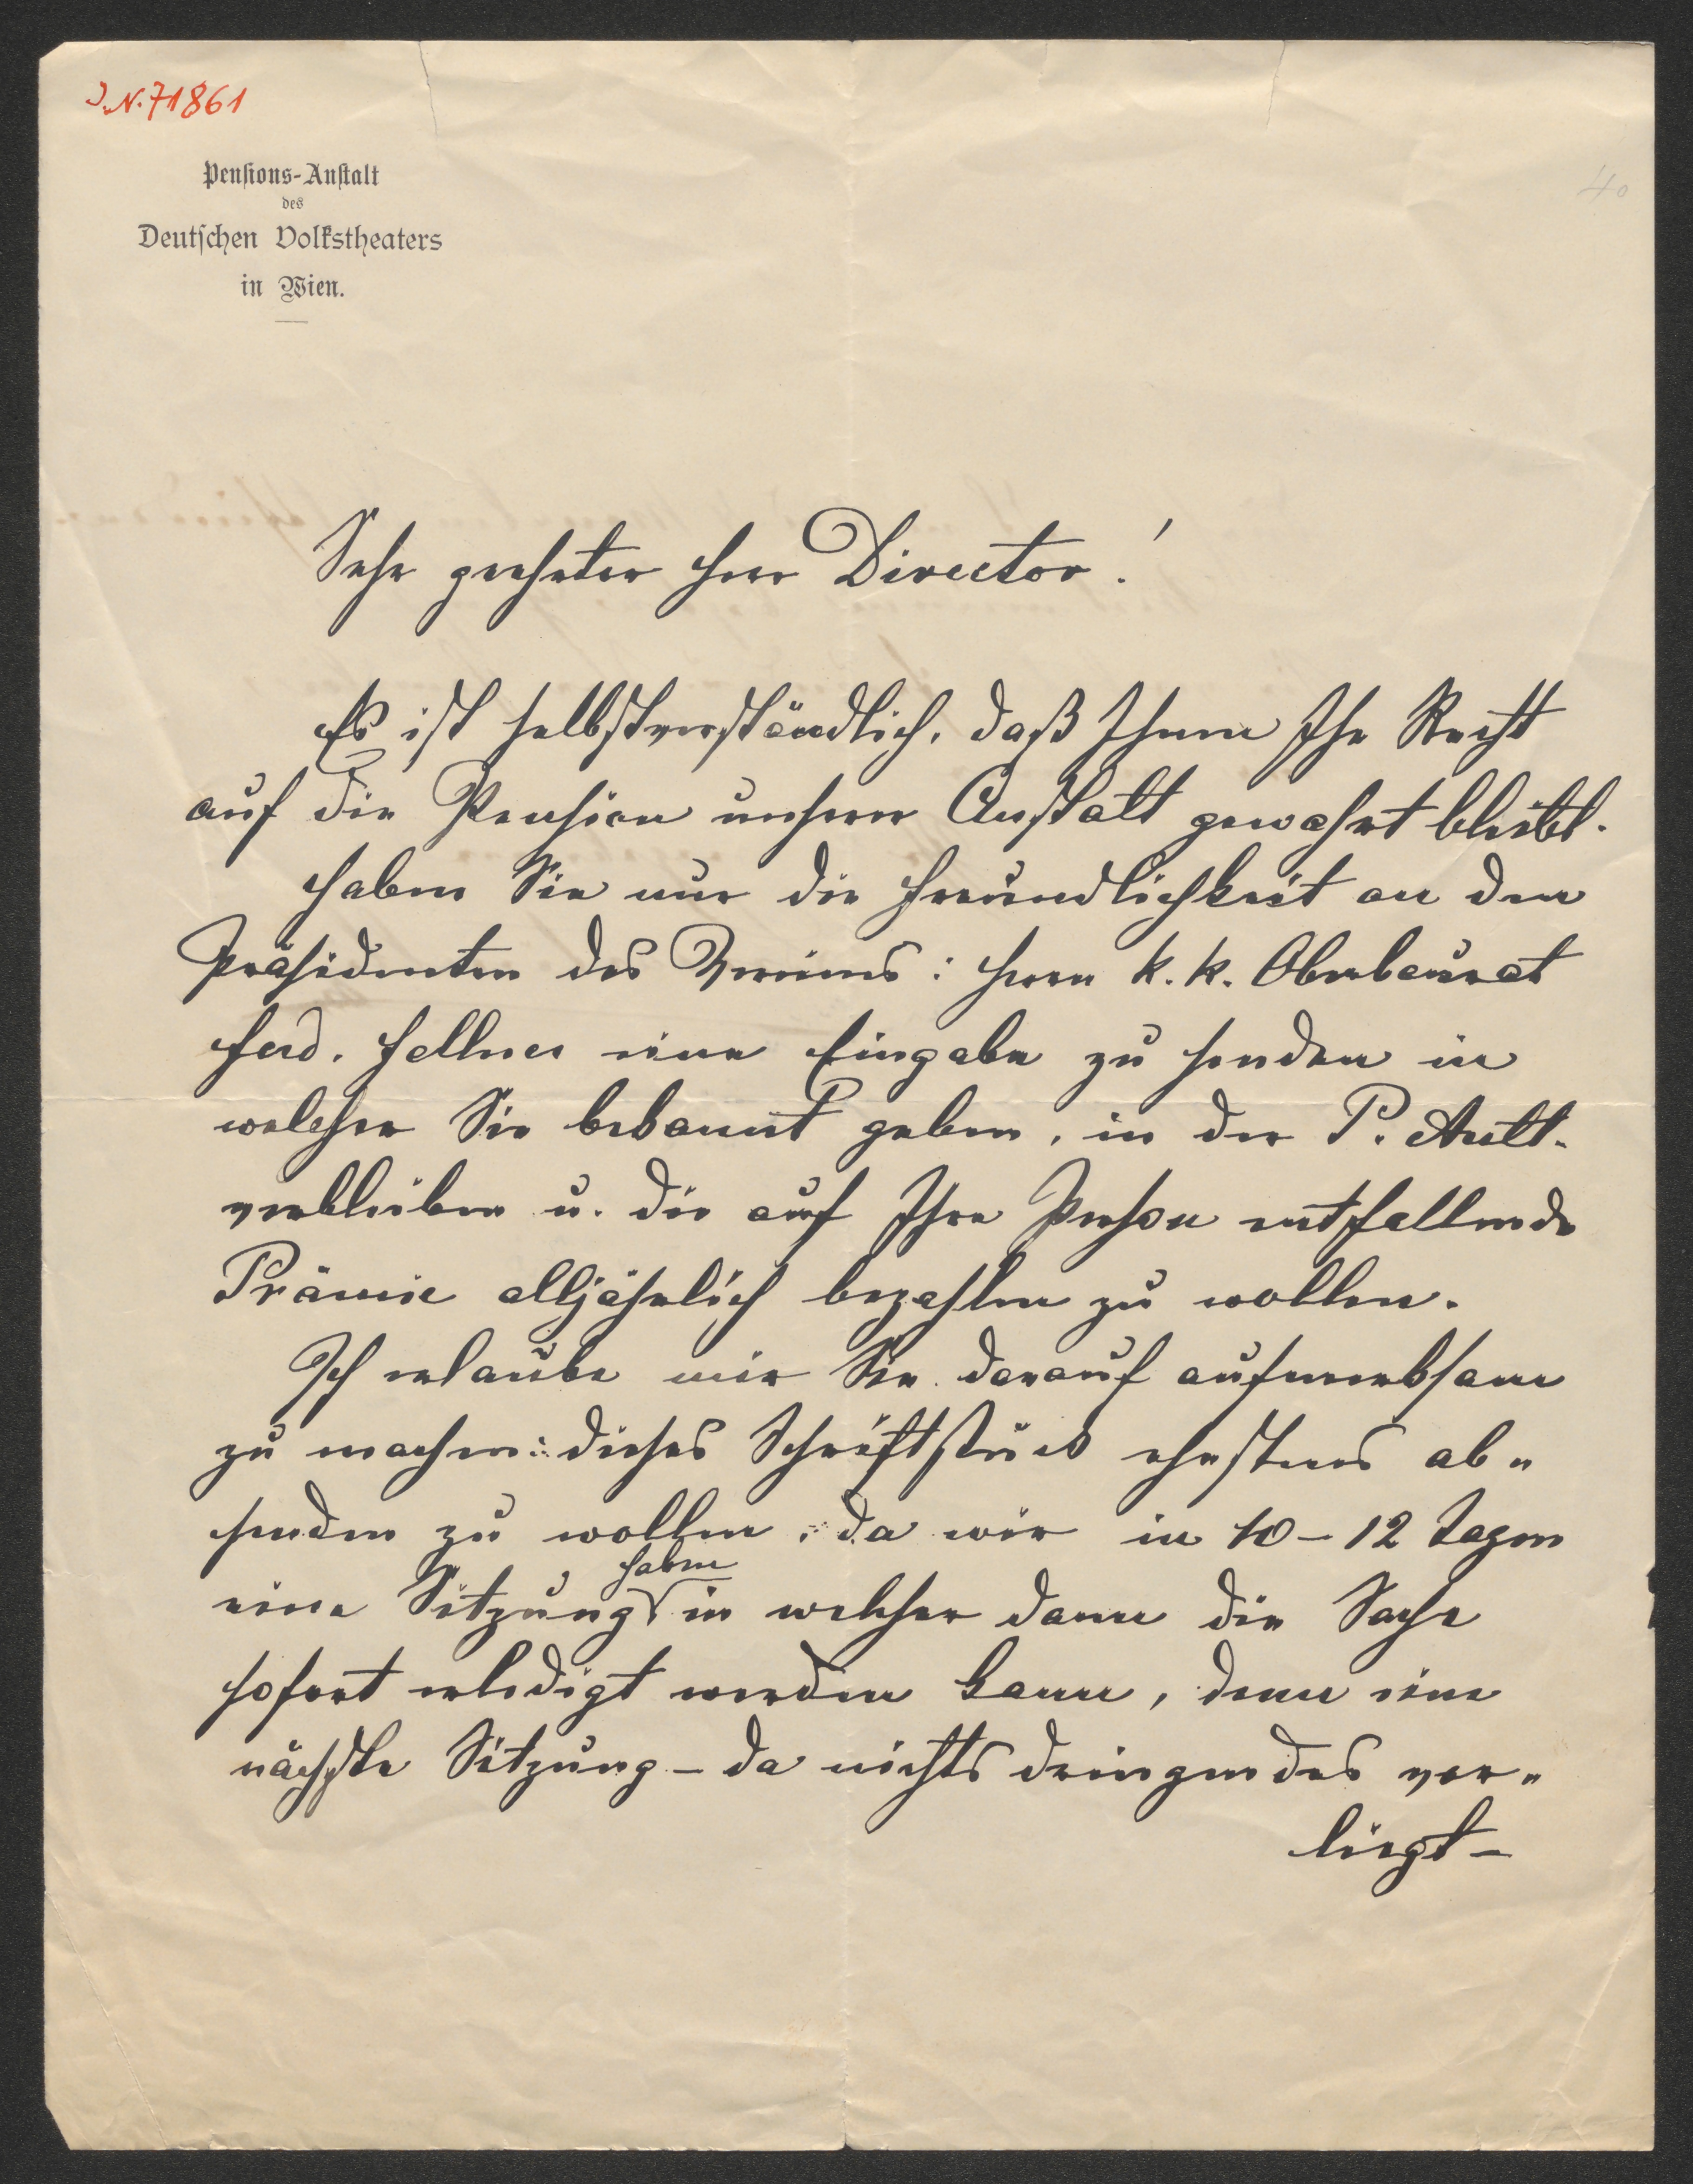 J.N. 71861
40
Pensions-Anstalt
des
Deutschen Volkstheaters
in Wien.
Sehr geehrter Herr Director!
Es ist selbstverständlich, daß Ihnen Ihr Recht
auf die Pension unserer Anstalt gewahrt bleibt.
Haben Sie nur die Freundlichkeit an den
Präsidenten des Vereines: Herrn k. k. Oberbaurat
Ferd. Fellner eine Eingabe zu senden in
welcher Sie bekannt geben, in der P. Anst.
verbleiben u. die auf Ihre Person entfallende
Prämie alljährlich bezahlen zu wollen.
Ich erlaube mir Sie darauf aufmerksam
zu machen: dieses Schriftstück ehestens ab-
senden zu wollen, da wir in 10-12 Tagen
haben
eine Sitzung in welcher dann die Sache
sofort erledigt werden kann, denn eine
nächste Sitzung – da nichts dringendes vor-
liegt –